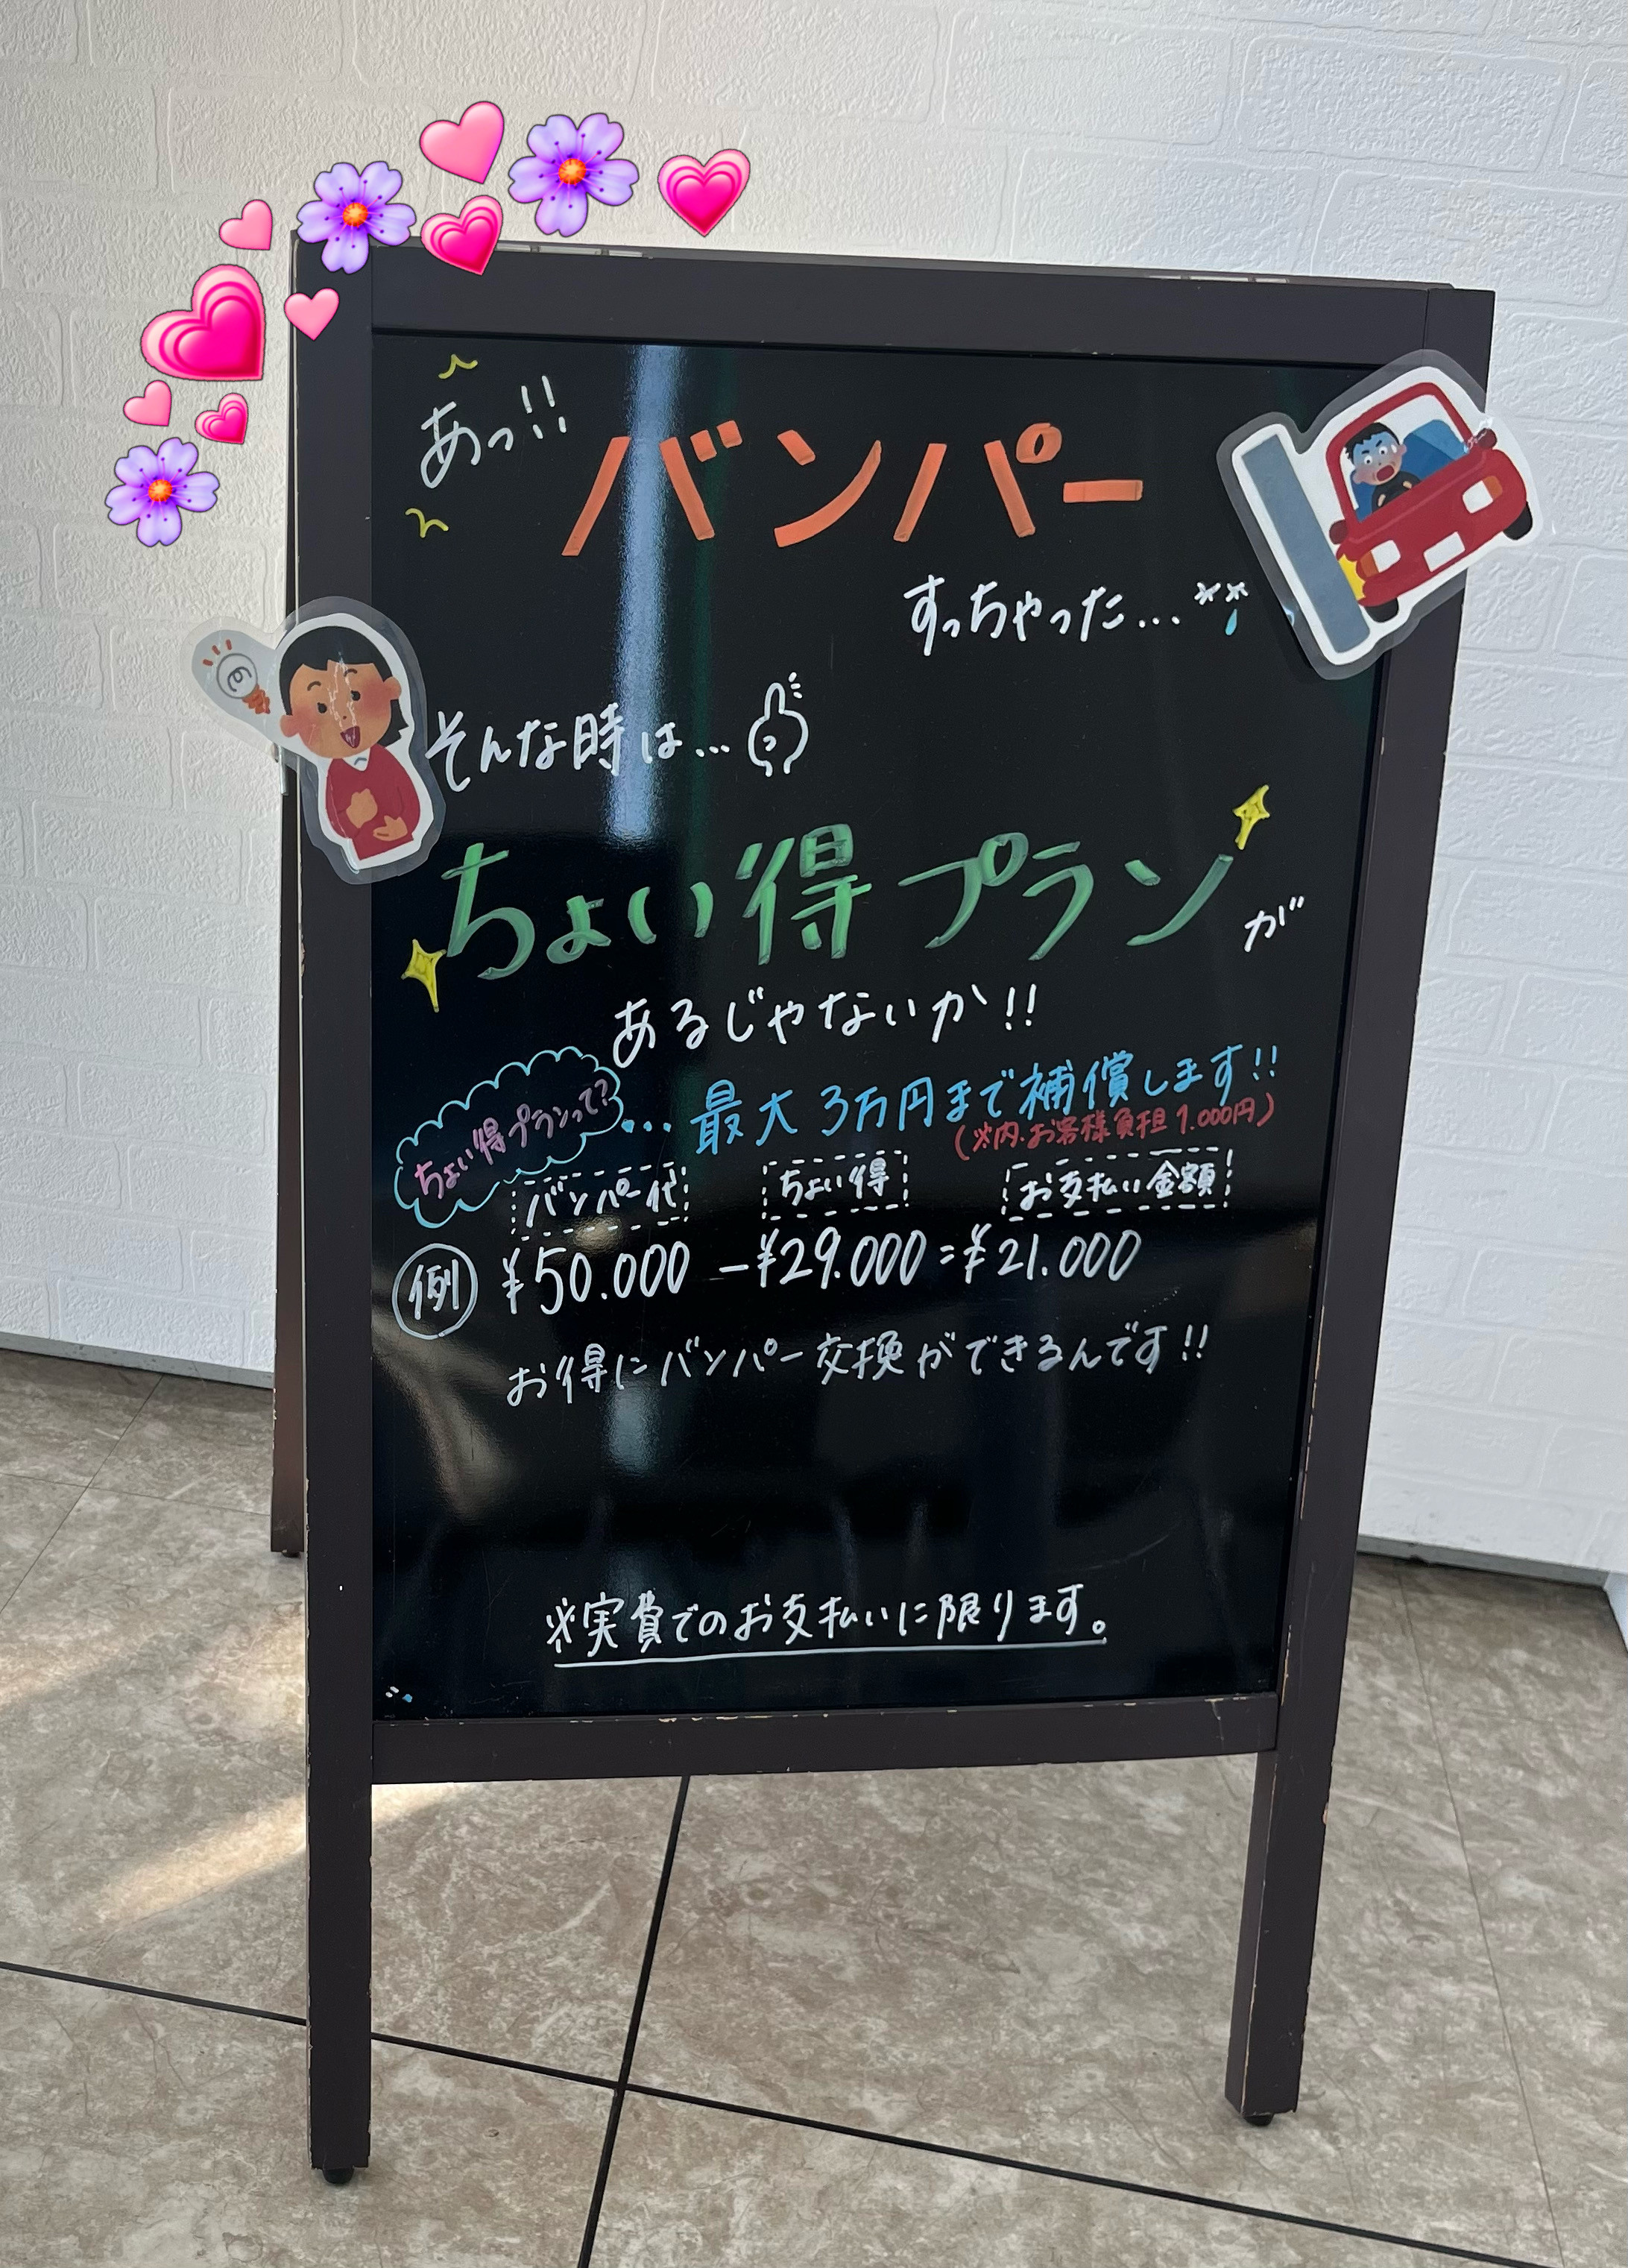 あっ!!
バンパー
すっちゃった...
そんな時は...
ちょい得プランが
あるじゃないか!!
ちょい得プランって?
...最大3万円まで補償します!!
(※内.お客様負担1.000円)
バンパー代 ちょい得 お支払い金額
例 ¥50.000 -¥29.000=¥21.000
お得にバンパー交換ができるんです!!
※実費でのお支払いに限ります。